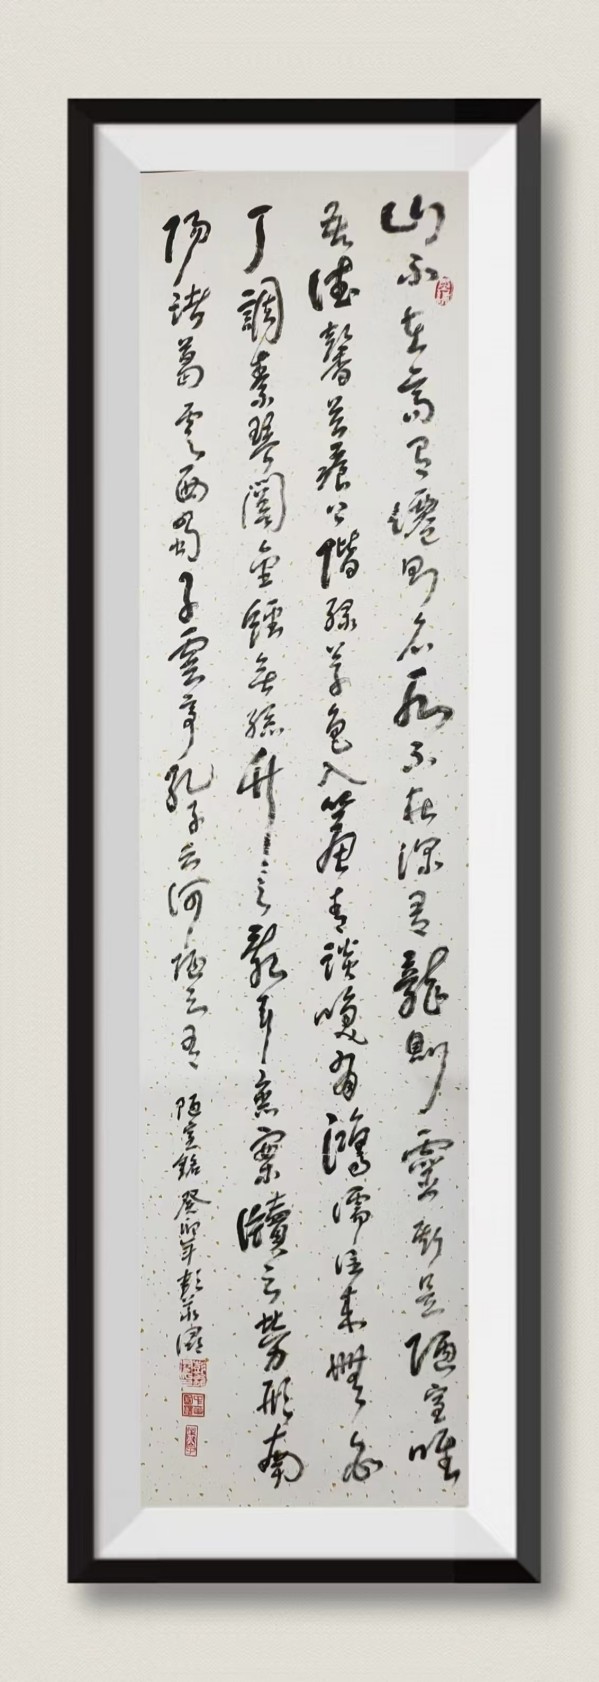 山不在高有僊則名水不在深有龍則靈斯是陋室唯
吾德馨苔痕上階綠草色入簾青談笑有鴻儒往來無白
丁調素琴閱金經無絲竹之音亂耳無案牘之勞形南
陽諸葛廬西蜀子雲亭孔子云何陋之有 陋室銘 癸卯年彭